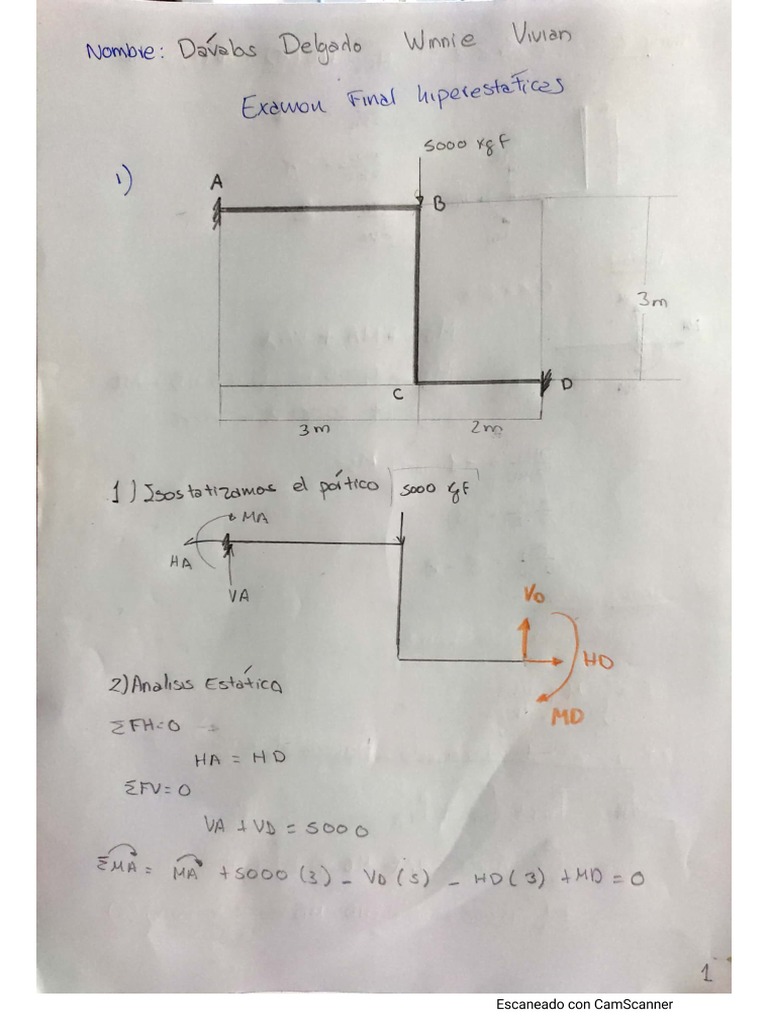 Nombre: Dávalos Delgado Winnie Vivian
Examen Final hiperestaticos
5000 kgf
1)
A
B
3m
C
D
3m
2m
1) Isostatizamos el pórtico
5000 kgf
MA
HA
VA
VD
HD
MD
2) Analisis Estático
ΣFH=0
HA = HD
ΣFV=0
VA + VD = 5000
ΣMA = MA + 5000 (3) - VD (5) - HD (3) + MD = 0
1
Escaneado con CamScanner